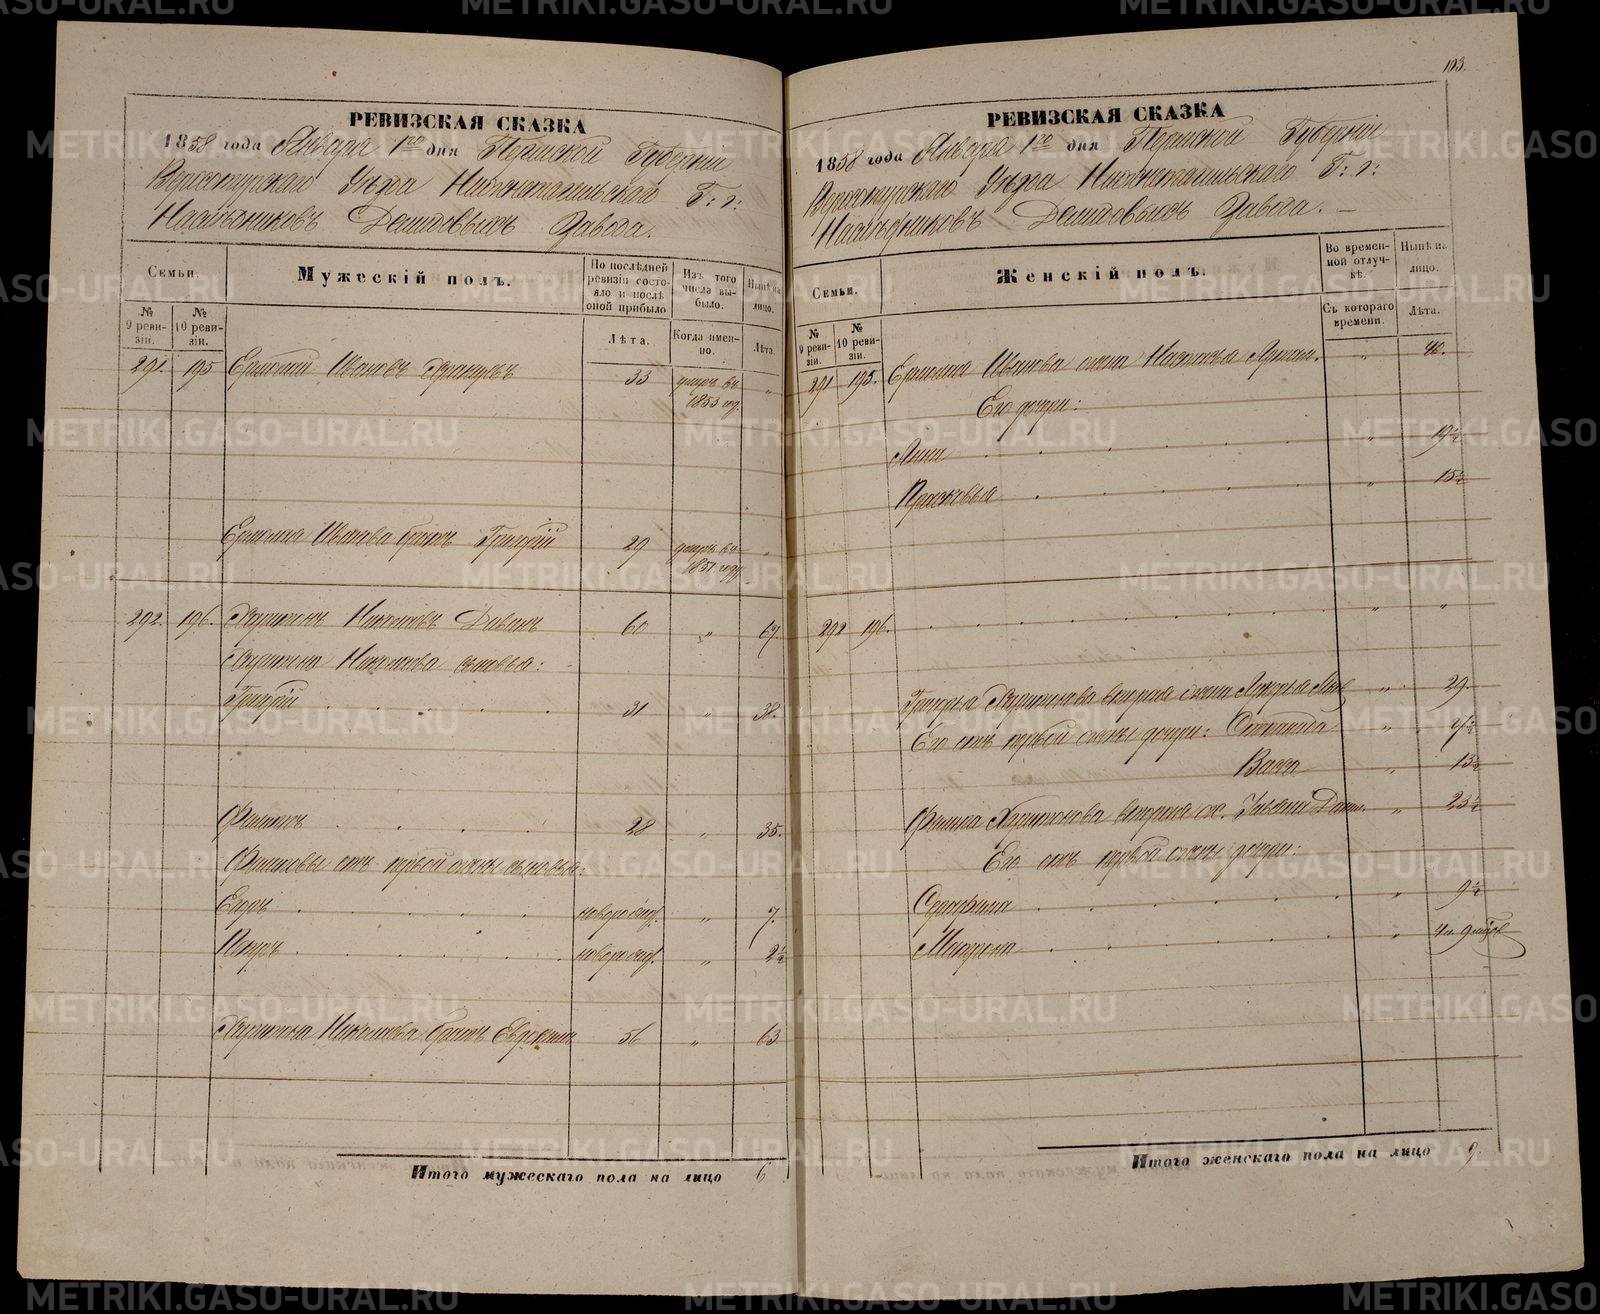 РЕВИЗСКАЯ СКАЗКА
1858 года Января 1го дня Пермской Губерніи
Верхотурскаго Уѣзда Нижнетагильскаго Г: г:
Наслѣдниковъ Демидовыхъ Завода.
Семьи.
Мужескій полъ.
По послѣдней ревизіи состояло и послѣ оной прибыло
Изъ того числа выбыло.
Нынѣ на лицо.
№ 9 ревизіи.
№ 10 ревизіи.
Лѣта.
Когда именно.
Лѣта.
291. 195 Ермолай Ивановъ 33 умеръ въ 1853 год. „
Ермолая Иванова братъ Григорій 29 умеръ въ 1851 году „
292. 196. Харитонъ 60 „ 67.
Харитона сыновья:
Григорій 31 „ 38.
Филипъ 28 „ 35.
Филиповы отъ первой жены сыновья:
Егоръ новорожд. „ 7.
Петръ новорожд. „ 2½
Харитона братъ Евдокимъ 56 „ 63
Итого мужескаго пола на лицо 6
103.
РЕВИЗСКАЯ СКАЗКА
1858 года Января 1го дня Пермской Губерніи
Верхотурскаго Уѣзда Нижнетагильскаго Г: г:
Наслѣдниковъ Демидовыхъ Завода. –
Семьи.
Женскій полъ.
Во временной отлучкѣ.
Нынѣ на лицо.
№ 9 ревизіи.
№ 10 ревизіи.
Съ котораго времени.
Лѣта.
291 195. Ермолая Иванова жена Настасья „ 40.
Его дочери:
Анна „ 19½
Прасковья „ 15½
292 196. „ „
Григорья Харитонова вторая жена „ 29.
Его отъ первой жены дочери: Степанида „
Васса „ 13½
Филипа Харитонова вторая ж. „ 23½
Его отъ первой жены дочери:
Серафима „ 9½
Матрена „
Итого женскаго пола на лицо 9.
METRIKI.GASO-URAL.RU